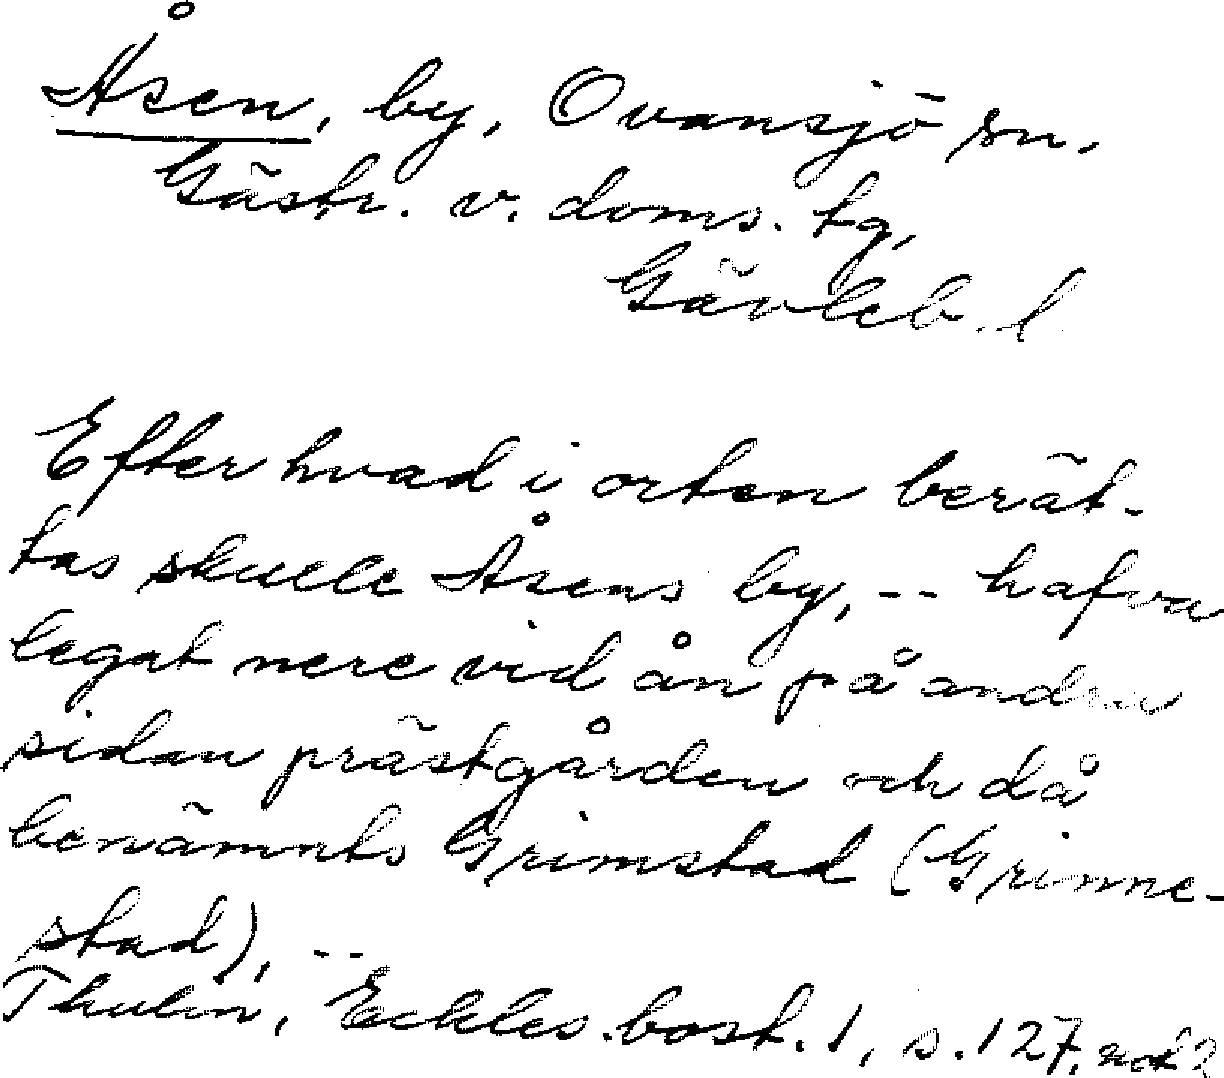 Åsen, by, Ovansjö sn.
Gästr. v. doms. tg,
Gävleb. l
Efter hvad i orten berät-
tas skulle Åsens by, -- hafva
legat nere vid ån på andra
sidan prästgården och då
benämnts Grimstad (Grinne-
stad), --
Thulin, Eckles. bost. 1, s. 127, not 2